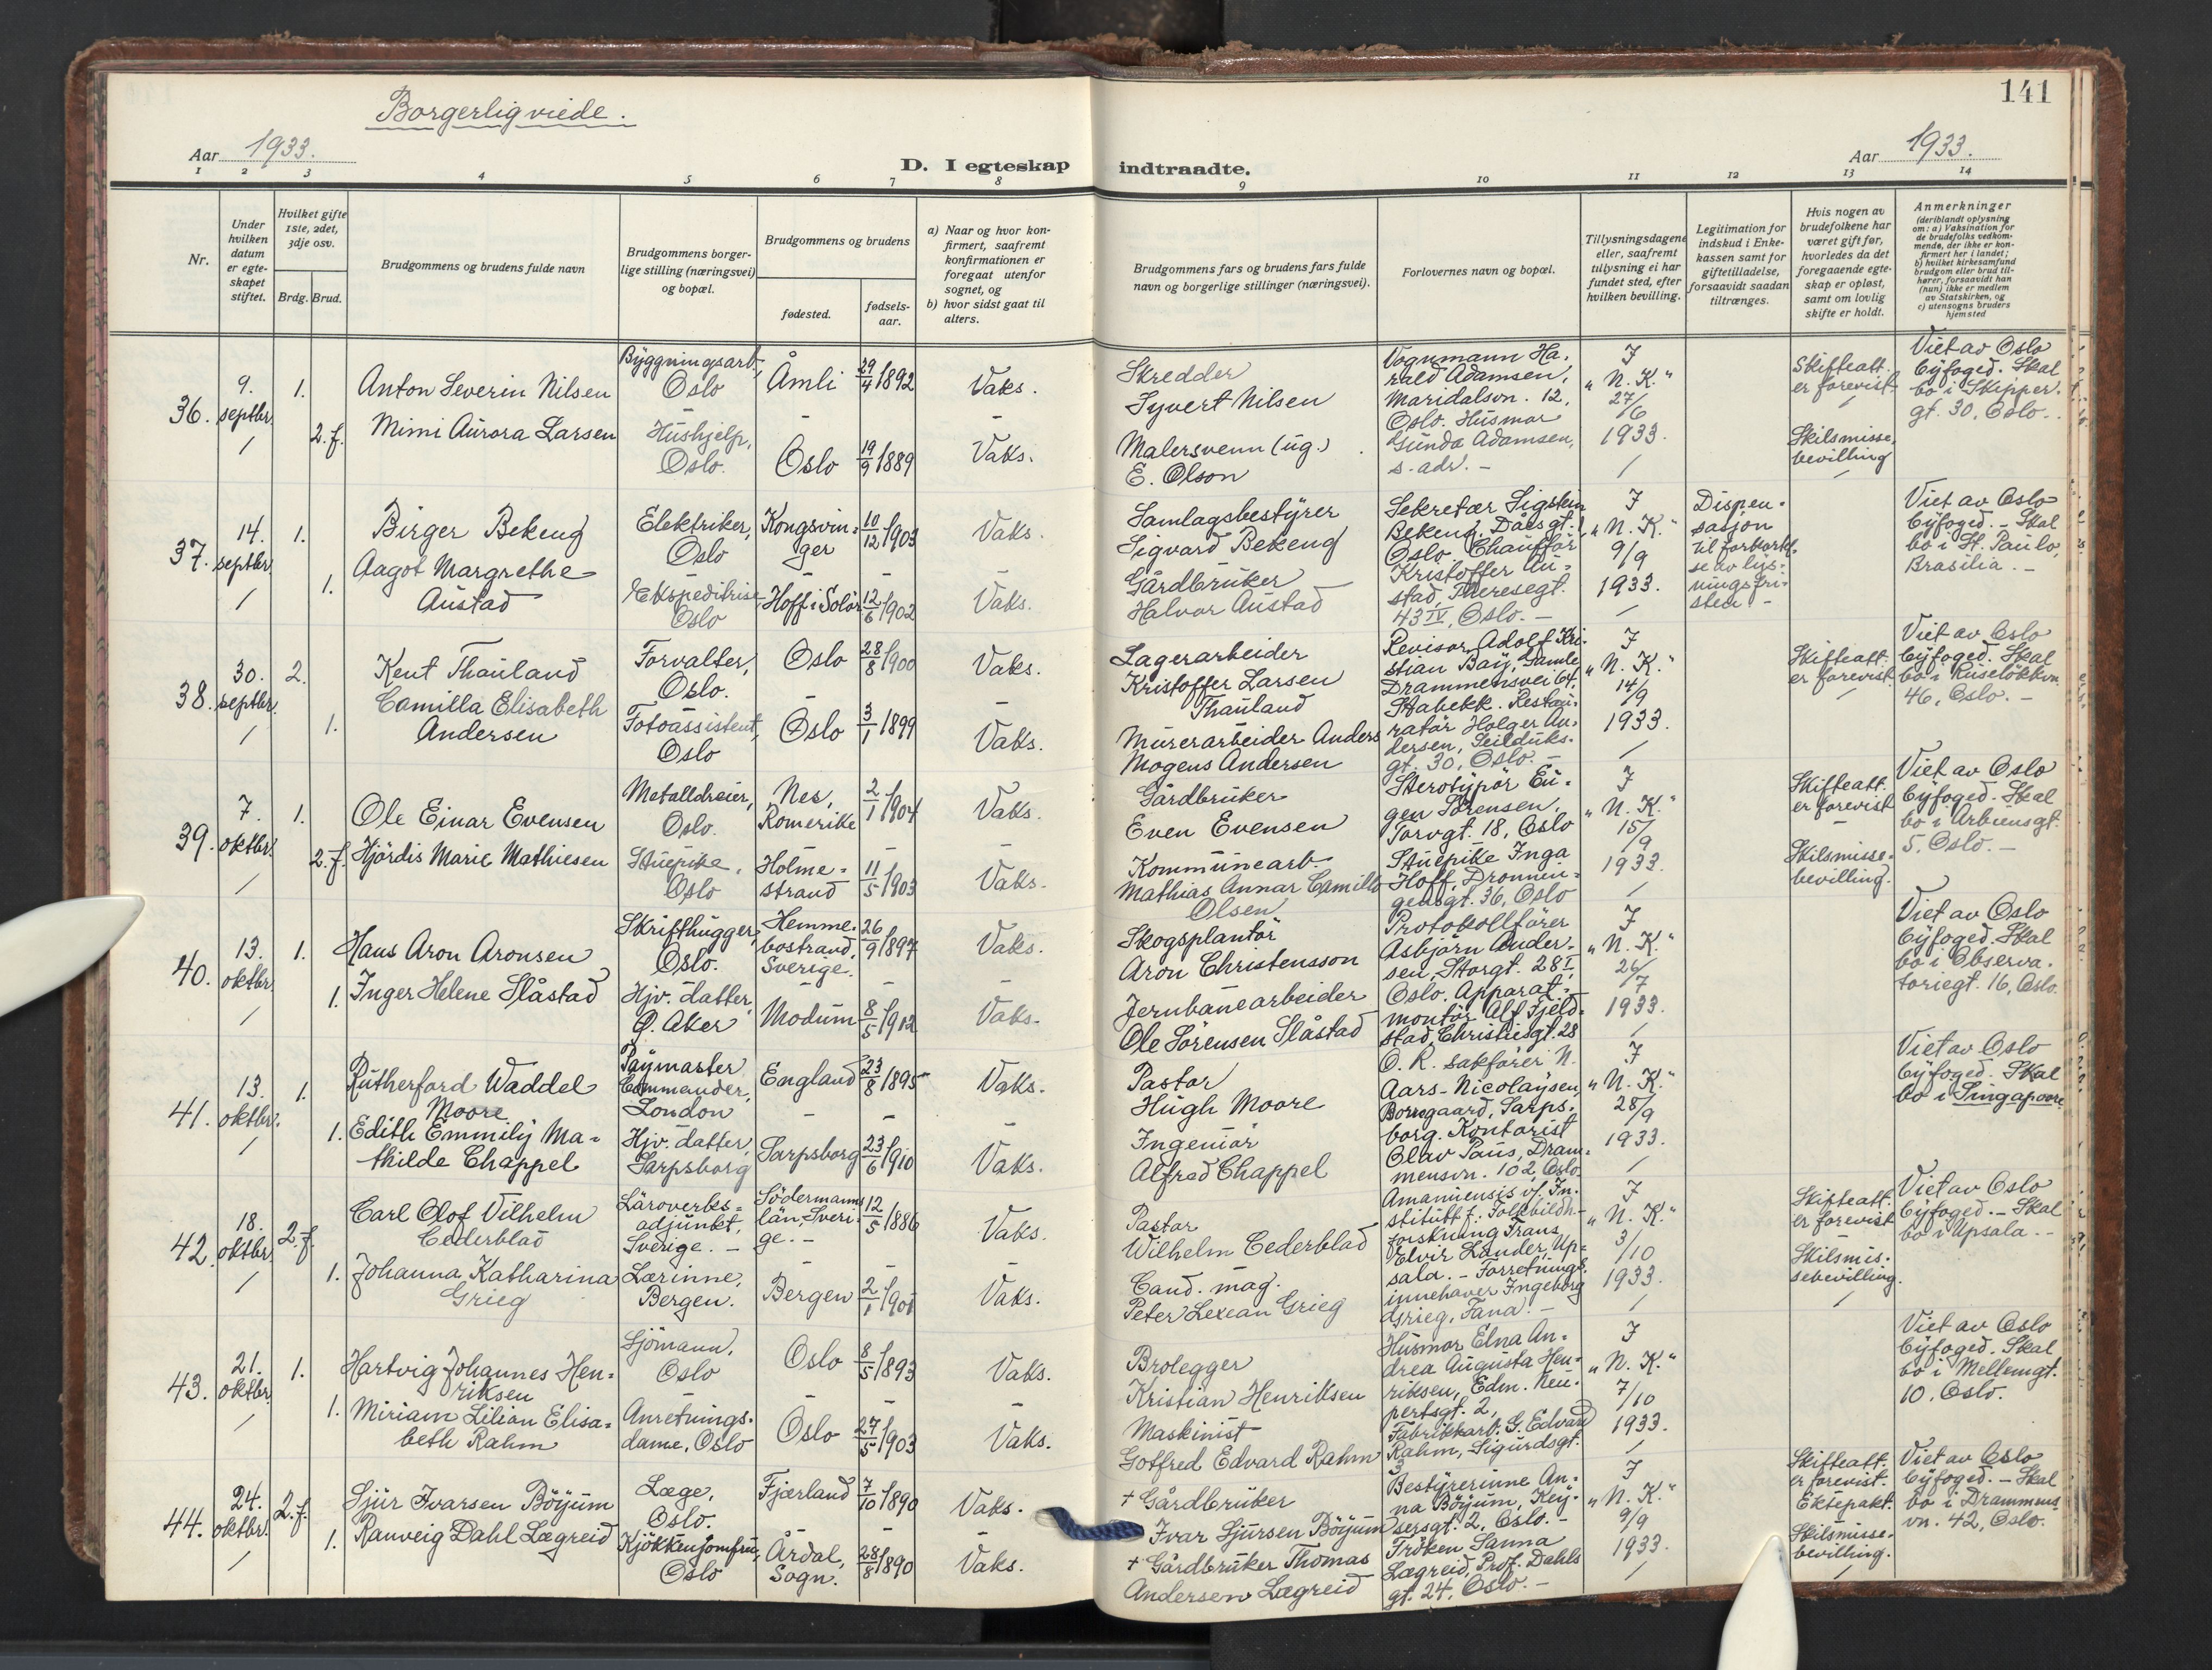 Borgerlig viede.
Aar 1933.
D. I egteskap indtraadte.
Aar 1933.
141
1 2 3 4 5 6 7 8 9 10 11 12 13 14
Nr.
Under hvilken datum er egte-skapet stiftet.
Hvilket gifte 1ste, 2det, 3dje osv.
Brdg. Brud.
Brudgommens og brudens fulde navn
Brudgommens borger-lige stilling (næringsvei) og bopæl.
Brudgommens og brudens
fødested.
fødsels-aar.
a) Naar og hvor kon-firmert, saafremt konfirmationen er foregaat utenfor sognet, og
b) hvor sidst gaat til alters.
Brudgommens fars og brudens fars fulde navn og borgerlige stillinger (næringsvei).
Forlovernes navn og bopæl.
Tillysningsdagene eller, saafremt tillysning ei har fundet sted, efter hvilken bevilling.
Legitimation for indskud i Enke-kassen samt for giftetilladelse, forsaavidt saadan tiltrænges.
Hvis nogen av brudefolkene har været gift før, hvorledes da det foregaaende egte-skap er opløst, samt om lovlig skifte er holdt.
Anmerkninger (deriblandt oplysning om: a) Vaksination for de brudefolks vedkom-mende, der ikke er kon-firmert her i landet; b) hvilket kirkesamfund brudgom eller brud til-hører, forsaavidt han (hun) ikke er medlem av Statskirken, og c) utensogns bruders hjemsted
36.
9. septbr.
1.
Anton Severin Nilsen
Byggningsarb., Oslo
Åmli
29/4 1892
Vaks.
Skredder
Syvert Nilsen
2. f.
Mimi Aurora Larsen
Hushjelp, Oslo.
Oslo
19/9 1889
Vaks.
Malersvenn (ug.)
E. Olson
Vognmann Ha-
rald Adamsen,
Maridalsvn. 12,
Oslo. Husmor
Gunda Adamsen,
s. adr. -
I
"N. K."
27/6
1933.
Skifteatt.
er forevist.
Skilsmisse,
bevilling
Viet av Oslo
byfoged. Skal
bo i Skipper.
gt. 30, Oslo.
37.
14. septbr.
1.
Birger Bekeng
Elektriker, Oslo
Kongsvin-
ger
10/12 1903
Vaks.
Samlagsbestyrer
Sigvard Bekeng
1.
Aagot Margrethe
Austad
Ekspeditrise
Oslo
Hoff i Solør
12/6 1902
Vaks.
Gårdbruker
Halvor Austad
Sekretær Sigstein
Bekeng, Daas gt.
Oslo. Chauffør
Kristoffer Au-
stad, Theresegt.
43 IV, Oslo. -
I
"N. K."
9/9
1933.
Dispen-
sasjon
til forkortel-
se av lys-
ningsfri-
sten -
Viet av Oslo
byfoged. - Skal
bo i St. Paulo,
Brasilia. -
38.
30. septbr.
2.
Kent Thauland
Forvalter,
Oslo.
Oslo
28/8 1900
Vaks.
Lagerarbeider
Kristoffer Larsen
Thauland
1.
Camilla Elisabeth
Andersen
Fotoassistent,
Oslo
Oslo
3/1 1899
Vaks.
Murerarbeider Anders
Mogens Andersen
Revisor Adolf Kri-
stian Bay, Gamle
Drammensvei 64,
Stabekk. Restau-
ratør Holger An-
dersen, Seilduks-
gt. 30, Oslo. -
I
"N. K."
14/9
1933.
Skifteatt.
er forevist.
Viet av Oslo
byfoged. Skal
bo i Ruseløkkvn.
46, Oslo. -
39.
7. oktbr.
1.
Ole Einar Evensen
Metalldreier,
Oslo.
Nes,
Romerike
2/1 1904
Vaks.
Gårdbruker
Even Evensen
2. f.
Hjördis Marie Mathiesen
Stuepike,
Oslo
Holme-
strand
11/5 1903
Vaks.
Kommunearb.
Mathias Annar Camillo
Olsen
Sterotypör Eu-
gen Sörensen,
Torvgt. 18, Oslo
Stuepike Inga
Hoff, Dronnin-
gensgt. 36, Oslo
I
"N. K."
15/9
1933.
Skifteatt.
er forevist
Skilsmisse-
bevilling.
Viet av Oslo
byfoged. Skal
bo i Arbiensgt.
5. Oslo. -
40.
13. oktbr.
1.
Hans Aron Aronsen
Skrifthugger,
Oslo.
Hemme-
bostrand,
Sverige.
26/9 1897
Vaks.
Skogsplantör
Aron Christensson
1.
Inger Helene Slåstad
Hjv. datter,
Ø. Aker
Modum
8/5 1912
Vaks.
Jernbanearbeider
Ole Sörensen Slåstad
Protokollförer
Asbjørn Ander-
sen, Storgt. 28 I,
Oslo. Apparat-
montör Alf Fjeld-
stad, Christiesgt. 28
I
"N. K."
26/7
1933.
Viet av Oslo
byfoged. Skal
bo i Observa-
toriegt. 16, Oslo.
41.
13. oktbr.
1.
Rutherford Waddel
Moore
Paymaster
Commander,
London
England
23/8 1895
Vaks.
Pastor
Hugh Moore
1.
Edith Emmily Ma-
thilde Chappel
Hjv. datter,
Sarpsborg
Sarpsborg
23/6 1910
Vaks.
Ingeniör
Alfred Chappel
O. R. sakförer N.
Aars-Nicolaysen,
Borregaard, Sarps-
borg. Kontorist
Olav Paus, Dram-
mensvn. 102, Oslo
I
"N. K."
28/9
1933.
Viet av Oslo
byfoged. Skal
bo i Singapoore
42.
18. oktbr.
2. f.
Carl Olof Vilhelm
Cederblad
Läroverks-
adjunkt,
Sverige. -
Södermanns
län, Sveri-
ge. -
12/5 1886
Vaks.
Pastor
Wilhelm Cederblad
1.
Johanna Katharina
Grieg
Lærinne,
Bergen.
Bergen
2/1 1901
Vaks.
Cand. mag.
Peter Lexean Grieg
Amanuensis v/ In-
stitutt f. Folkbildn-
forskning Frans
Elvir Lander, Up-
sala. - Forretnings-
innehaver Ingeborg
Grieg, Fana. -
I
"N. K."
3/10
1933.
Skifteatt.
er forevist
Skilsmis-
sebevilling.
Viet av Oslo
byfoged. - Skal
bo i Upsala. -
43.
21. oktbr.
1.
Hartvig Johannes Hen-
riksen
Sjömann,
Oslo
Oslo
8/5 1893
Vaks.
Brolegger
Kristian Henriksen
1.
Miriam Lilian Elisa-
beth Rahm
Anretnings-
dame, Oslo
Oslo
27/5 1903
Vaks.
Maskinist
Gotfred Edvard Rahm
Husmor Elna An-
drea Augusta Hen-
riksen, Edm. Neu-
pertsgt. 2,
Fabrikkarb. G. Edvard
Rahm, Sigurdsgt.
3
I
"N. K."
7/10
1933.
Viet av Oslo
byfoged. Skal
bo i Mellemgt.
10, Oslo.
44.
24. oktbr.
2. f.
Sjur Ivarsen Böyum
Læge,
Oslo.
Fjærland
7/10 1890
Vaks.
+ Gårdbruker
Ivar Sjursen Böyum
1.
Ranveig Dahl Lægreid
Kjökkenjomfru,
Oslo
Årdal,
Sogn.
28/8 1890
Vaks.
+ Gårdbruker Thomas
Andersen Lægreid
Bestyrerinne An-
na Böyum, Key-
sersgt. 2, Oslo. -
Fröken Sanna
Lægreid, Prof. Dahls
gt. 24, Oslo. -
I
"N. K."
9/9
1933.
Skifteatt.
er forevist.
Ektepakt.
Skilsmisse-
bevilling.
Viet av Oslo
byfoged. - Skal
bo i Drammens
vn. 42, Oslo.